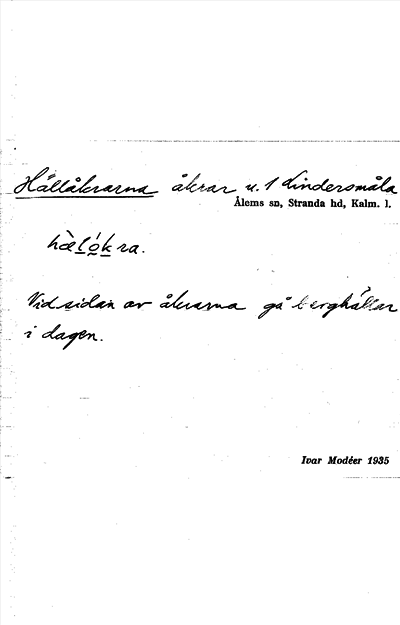 Hällåkrarna åkrar u. 1 Lindersmåla
Ålems sn, Stranda hd, Kalm. l.
hæ̀ló̱ḵra.
Vid sidan av åkrarna gå berghällar
i dagen.
Ivar Modéer 1935